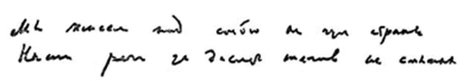 Мы живем под собою не чуя страны
Наши речи за десять шагов не слышны